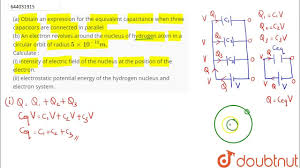 644031915
(a) Obtain an expression for the equivalent capacitance when three
capacitors are connected in parallel
(b) An electron revolves around the nucleus of hydrogen atom in a
circular orbit of radius 5 × 10⁻¹¹ m.
Calculate :
(i) intensity of electric field of the nucleus at the position of the
electron.
(ii) electrostatic potential energy of the hydrogen nucleus and
electron system.
(i) Q = Q₁ + Q₂ + Q₃
Ceq V = C₁V + C₂V + C₃V
Ceq = C₁ + C₂ + C₃ //
Q₁ C₁
Q₂
Q₃
V
Q₁ = C₁V
Q₂ = C₂V
Ceq
V
Q = Ceq V
doubtnut